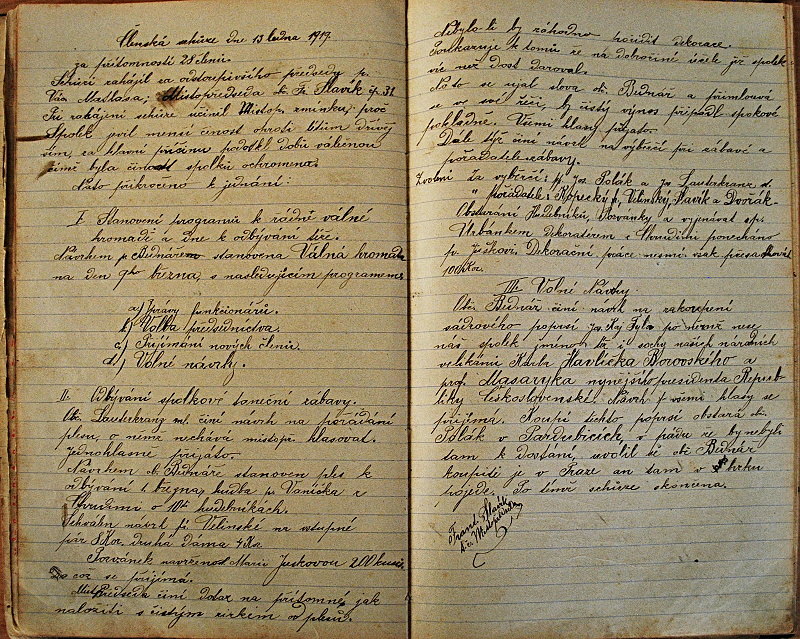 Členská schůze dne 13 ledna 1919.
za přítomnosti 28 členů.
Schůzi zahájil za odstoupivšího předsedy p.
Václ. Mathasa; Místopředseda br. Fr. Slavík čp. 31
Při zahájení schůze učinil Místop. zmínku; proč
Spolek jevil menší činost oproti létům dřívěj
ším, za hlavní příčinu podotkl dobu válečnou
čímž byla činost spolku ochromena.
Nato přikročeno k jednání:
I. Stanovení programu k řádné valné
hromadě a dne k odbývání též.
Návrhem p. Bednářem stanovena Valná hromada
na den 9ho března, s následujícím programem
a) Zprávy funkcionářů.
b) Volba předsednictva.
c) Přijímání nových členů.
d) Volné návrhy.
II. Odbývání spolkové taneční zábavy.
Otc. Lauterkranz ml. činí návrh na pořádání
plesu, o němž nechává místopř. hlasovat.
jednohlasně přijato.
Návrhem br. Bednáře stanoven ples k
odbývání 1. března, hudba p. Vaníčka z
Chrudimi o 10ti hudebnících.
Schválen návrh p. Velinské na vstupné
pár 8 Kor. druhá dáma 4 Kor.
Pozvánek navrženo Marií Juskovou 200 kusů
což se přijímá.
Místopředseda činí dotaz na přítomné, jak
naložiti s čistým ziskem od plesu.
Nebylo-li by záhodno poříditi dekorace.
Poukazuje k tomu že na dobročinné účele již spolek
víc než dost daroval.
Nato se ujal slova br. Bednář a přimlouvá
se ve své řeči, by čistý výnos připadl spolkové
pokladně. Všemi hlasy přijato.
Dále týž činí návrh na výběrčí při zábavě a
pořadatele zábavy.
Zvoleni za výběrčí: pp Jos. Polák a Jos Lauterkranz st.
" Pořadatelé: Kopecký, Velinský, Slavík a Dvořák
Obstarání Hudebníků, Pozvánky a vyjednávat sp.
Urbankem dekoraterem. Chrudimi ponecháno
p. Juškovi. Dekorační práce nesmí však přesahovat
100 Kor.
III. Volné Návrhy.
Otc. Bednář činí návrh na zakoupení
sádrového poprsí Jos. Kaj. Tyla po němž nese
náš spolek jméno; též i sochy našich národních
velikánů Karla Havlíčka Borovského a
prof. Masaryka nynějšího presidenta Repub-
liky Československé. Návrh všemi hlasy se
přijímá. Koupi těchto poprsí obstará br.
Polák v Pardubicích, v pádu že by nebyli
tam k dostání, svolil se br. Bednář
koupiti je v Praze an tam v krku
pojede. Po té schůze skončena.
Frant. Slavík
t.č. Místopředseda